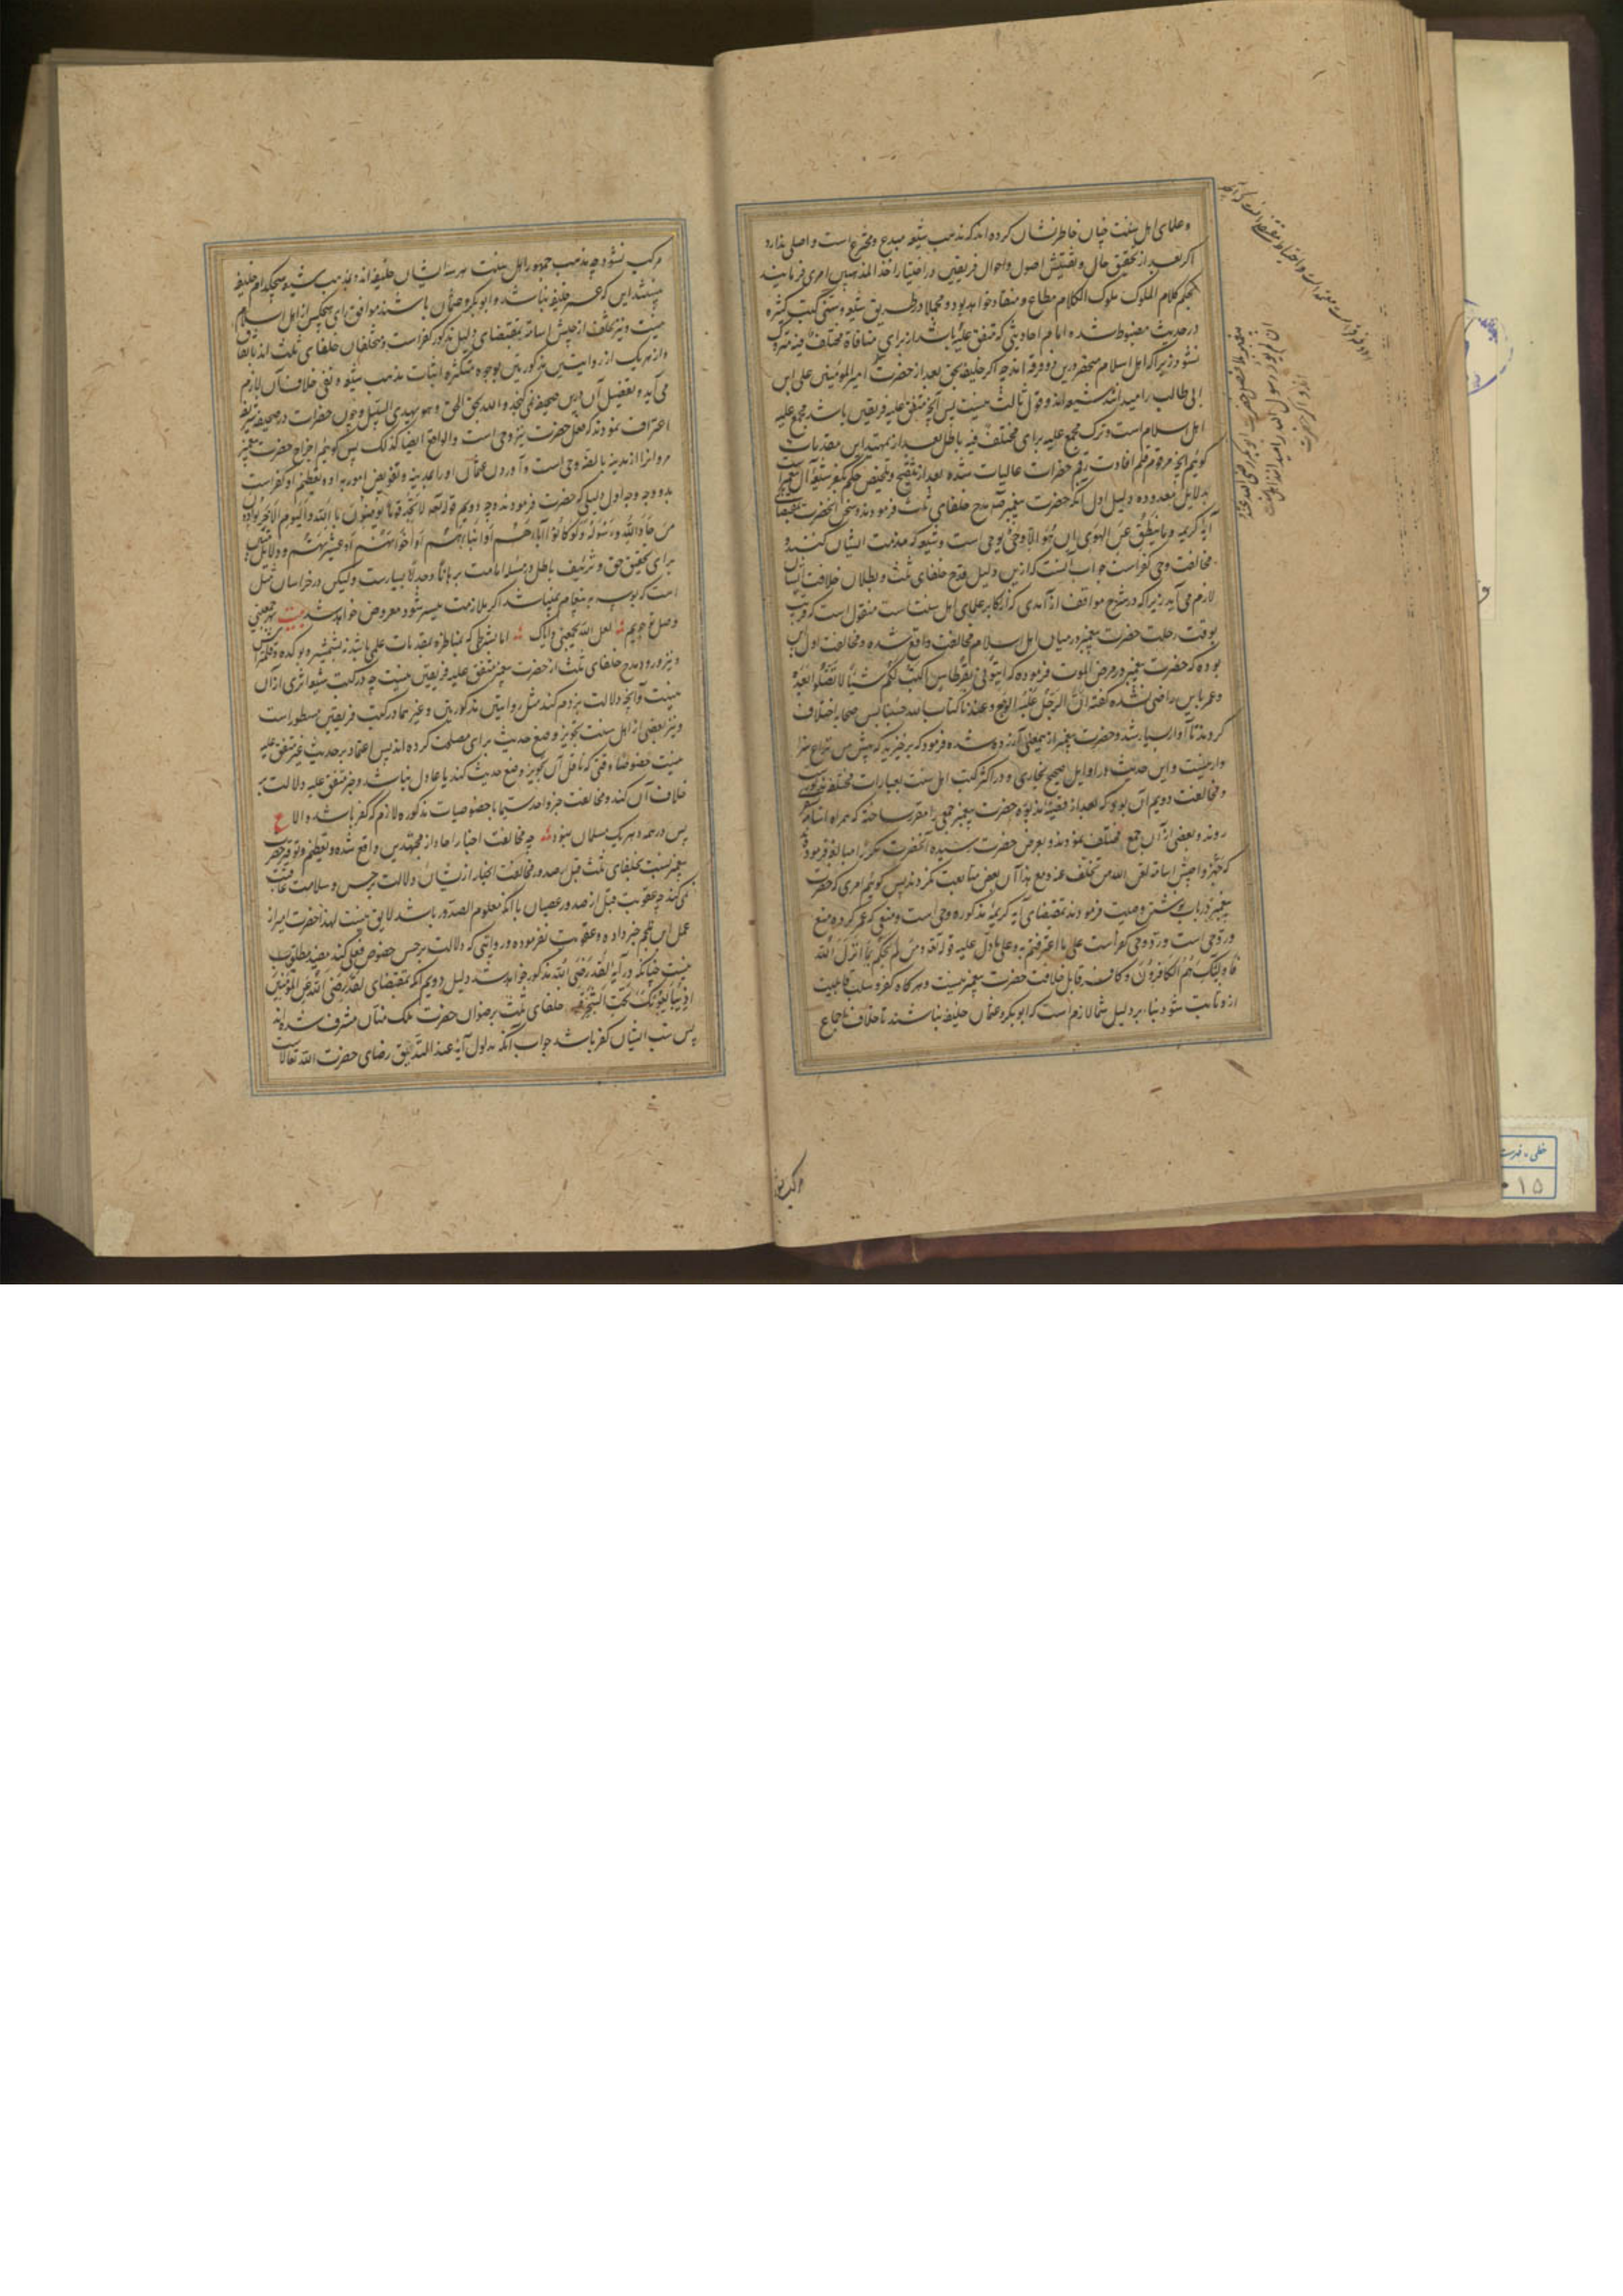 و علمای اهل سنت چنان خاطر نشان کرده اند که مذهب شیعه مبدع و مخترع است و اصلی ندارد
اگر بعد از تحقیق حال و تفتیش اصول و احوال فریقین در اختیار اخذ المذهبین امری فرمایند
بحکم کلام الملوک ملوک الکلام مطاع و منقاد خواهد بود و مجملا در طریق شیعه و سنی کتب کثیره
در حدیث مضبوط شده اما هر احادیثی که متفق علیه باشد از برای منافاة مختلف فیه متروک
نشود زیرا که اهل اسلام منحصر درین دو فرقه اند چه اگر خلیفه بحق بعد از حضرت امیرالمومنین علی ابن
ابی طالب را میدانند شیعه اند و قول ثالث نیست پس آنچه متفق علیه فریقین باشد مجمع علیه
اهل اسلام است و ترک مجمع علیه برای مختلف فیه باطل بعد از تمهید این مقدمات
کوئیم آنچه مرقوم قلم افادت رقم حضرات عالیات شده بعد از تنقیح و تلخیص حکم بکفر شیعه آل
بدلایل معدوده دلیل اول آنکه حضرت پیغمبر مدح خلفای ثلث فرمودند و سخن آنحضرت بمقتضای
آیه کریمه و ما ینطق عن الهوی ان هو الا وحی یوحی است و شیعه که مذمت ایشان کنند و
مخالفت وحی کفر است جواب آنست که ازین دلیل قدح خلفای ثلث و بطلان خلافت ایشان
لازم می آید زیرا که در شرح مواقف از آمدی که از اکابر علمای اهل سنت است منقول است که قریب
بوقت رحلت حضرت پیغمبر در میان اهل اسلام مخالفت واقع شده و مخالفت اول این
بوده که حضرت پیغمبر در مرض الموت فرموده که ایتونی بقرطاس اکتب لکم شیئا لا تضلوا بعده
و عمر باین راضی نشده گفته ان الرجل غلبه الوجع و عندنا کتاب الله حسبنا پس صحابه اختلاف
کردند تا آواز بسیار شد و حضرت پیغمبر از ینمعنی آزرده شده فرمود که برخیزید که پیش من نزاع سزا
وار نیست و این حدیث در اوایل صحیح بخاری و در اکثر کتب اهل سنت بعبارات مختلفه مذکور است
و مخالفت دویم آن بود که بعد از قضیه مذبوره حضرت پیغمبر جمعی را مقرر ساخته که همراه اسامه
روند و بعضی از آن جمع مختلف نمودند و بعرض حضرت رسیده آنحضرت مکررا مبالغه فرمودند
که جهزوا جیش اسامه لعن الله من تخلف عنه و مع هذا آن بعض متابعت نکردند پس کوئیم امری که حضرت
پیغمبر در باب نوشتن وصیت فرمودند بمقتضای آیه کریمه مذکوره وحی است و منعی که عمر کرده منع
و رد وحی است و رد وحی کفر است علی ما اعترفتم به و علی ما دل علیه قوله تعه و من لم یحکم بما انزل الله
فاولئک هم الکافرون و کافر قابل خلافت حضرت پیغمبر نیست و هرگاه کفر و سلب قابلیت
ازو ثابت شود بنا بر دلیل شما لازم است که ابوبکر و عثمان خلیفه نباشند تا خلاف اجماع
مرکب نشود چه مذهب جمهور اهل سنت هر سه ایشان خلیفه اند و مذهب شیعه هیچکدام خلیفه
نیستند این که عمر خلیفه نباشد و ابوبکر و عثمان باشند موافق رای هیچکس از اهل اسلام
نیست و نیز تخلف از جیش اسامه بمقتضای دلیل مذکور کفر است و متخلفان خلفای ثلث اند بالاتفاق
و از هر یک از روایتین مذکورتین بوجوه متکثره اثبات مذهب شیعه و نفی خلاف آن لازم
می آید و تفضیل آن درین صحیفه نمی گنجد و الله یحق الحق و هو یهدی السبیل و چون حضرات در صحیفه شریفه
اعتراف نمودند که فعل حضرت نیز وحی است و الواقع ایضا کذلک پس کوئیم اخراج حضرت پیغمبر
مروان را از مدینه بالضروحی است و آوردن عثمان او را بمدینه و تفویض امور باو و تعظیم او کفر است
بدو وجه وجه اول دلیلی که حضرت فرمودند وجه دویم قوله تعه لا تجد قوما یومنون بالله و الیوم الاخر یوادون
من حاد الله و رسوله و لو کانوا آباءهم او ابناءهم او اخوانهم او عشیرتهم و دلایل
برای تحقیق حق و تزئیف باطل در مسئله امامت برهانا و جدلا بسیار است ولیکن در خراسان مثل
است که بوسه به پیغام نمیباشد اگر ملازمت میسر شود معروض خواهد شد بیت
وصل می جویم لعل الله یجمعنی و ایاک اما بشرطی که مناظره بمقدمات علمی باشد نه بشمشیر و
و نیز ورود مدح خلفای ثلث از حضرت پیغمبر متفق علیه فریقین نیست چه در کتب شیعه اثری از آن
نیست و آنچه دلالت بر ذم کند مثل روایتین مذکورتین و غیرهما در کتب فریقین مسطور است
و نیز بعضی از اهل سنت تجویز وضع حدیث برای مصلحت کرده اند پس اعتماد بر حدیث غیر متفق علیه
نیست خصوصا وقتی که ناقل آن تجویز وضع حدیث کند یا عادل نباشد و خبر متفق علیه دلالت بر
خلاف آن کند و مخالفت خبر واحد سیما با خصوصیات مذکوره لازم که کفر باشد و الا
پس در همه دهر یک مسلمان نبود چه مخالفت اخبار احاد از مجتهدین واقع شده و تعظیم و توقیر حضرت
پیغمبر نسبت بخلفای ثلث قبل صدور مخالفت اخبار ازیشان دلالت بر حسن و سلامت عاقبت
نمی کند چه عقوبت قبل از صدور عصیان با آنکه معلوم الصدور باشد لایق نیست لهذا حضرت امیر از
عمل ابن ملجم خبر داده و عقوبت نفرموده و روایتی که دلالت بر حسن خصوص فعلی کند مفید مطلوب
نیست چنانکه در آیه لقد رضی الله مذکور خواهد شد دلیل دویم آنکه بمقتضای لقد رضی الله عن المؤمنین
اذ یبایعونک تحت الشجره خلفای ثلث برضوان حضرت ملک منان مشرف شده اند
پس سب ایشان کفر باشد جواب آنکه مدلول آیه عند التدقیق رضای حضرت الله تعالی است